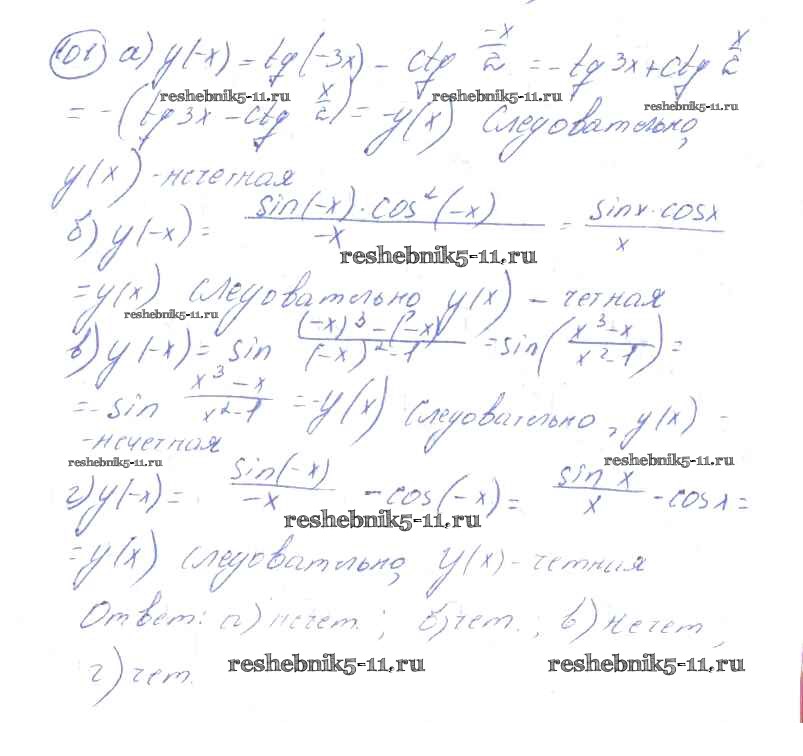 101) а) y(-x) = tg(-3x) - ctg -x/2 = -tg 3x + ctg x/2
reshebnik5-11.ru reshebnik5-11.ru
= -(tg 3x - ctg x/2) = -y(x) Следовательно,
y(x) - нечетная
б) y(-x) = sin(-x)·cos²(-x)/-x = sinx·cosx/x
reshebnik5-11.ru
= y(x) следовательно y(x) - четная
reshebnik5-11.ru
в) y(-x) = sin (-x)³-(-x)/(-x)²-1 = sin(x³-x/x²-1) =
= -sin x³-x/x²-1 = -y(x) следовательно, y(x) -
- нечетная
reshebnik5-11.ru reshebnik5-11.ru
г) y(-x) = sin(-x)/-x - cos(-x) = sin x/x - cosx =
reshebnik5-11.ru
= y(x) следовательно, y(x) - четная
Ответ: а) нечет.; б) чет.; в) нечет,
г) чет.
reshebnik5-11.ru reshebnik5-11.ru